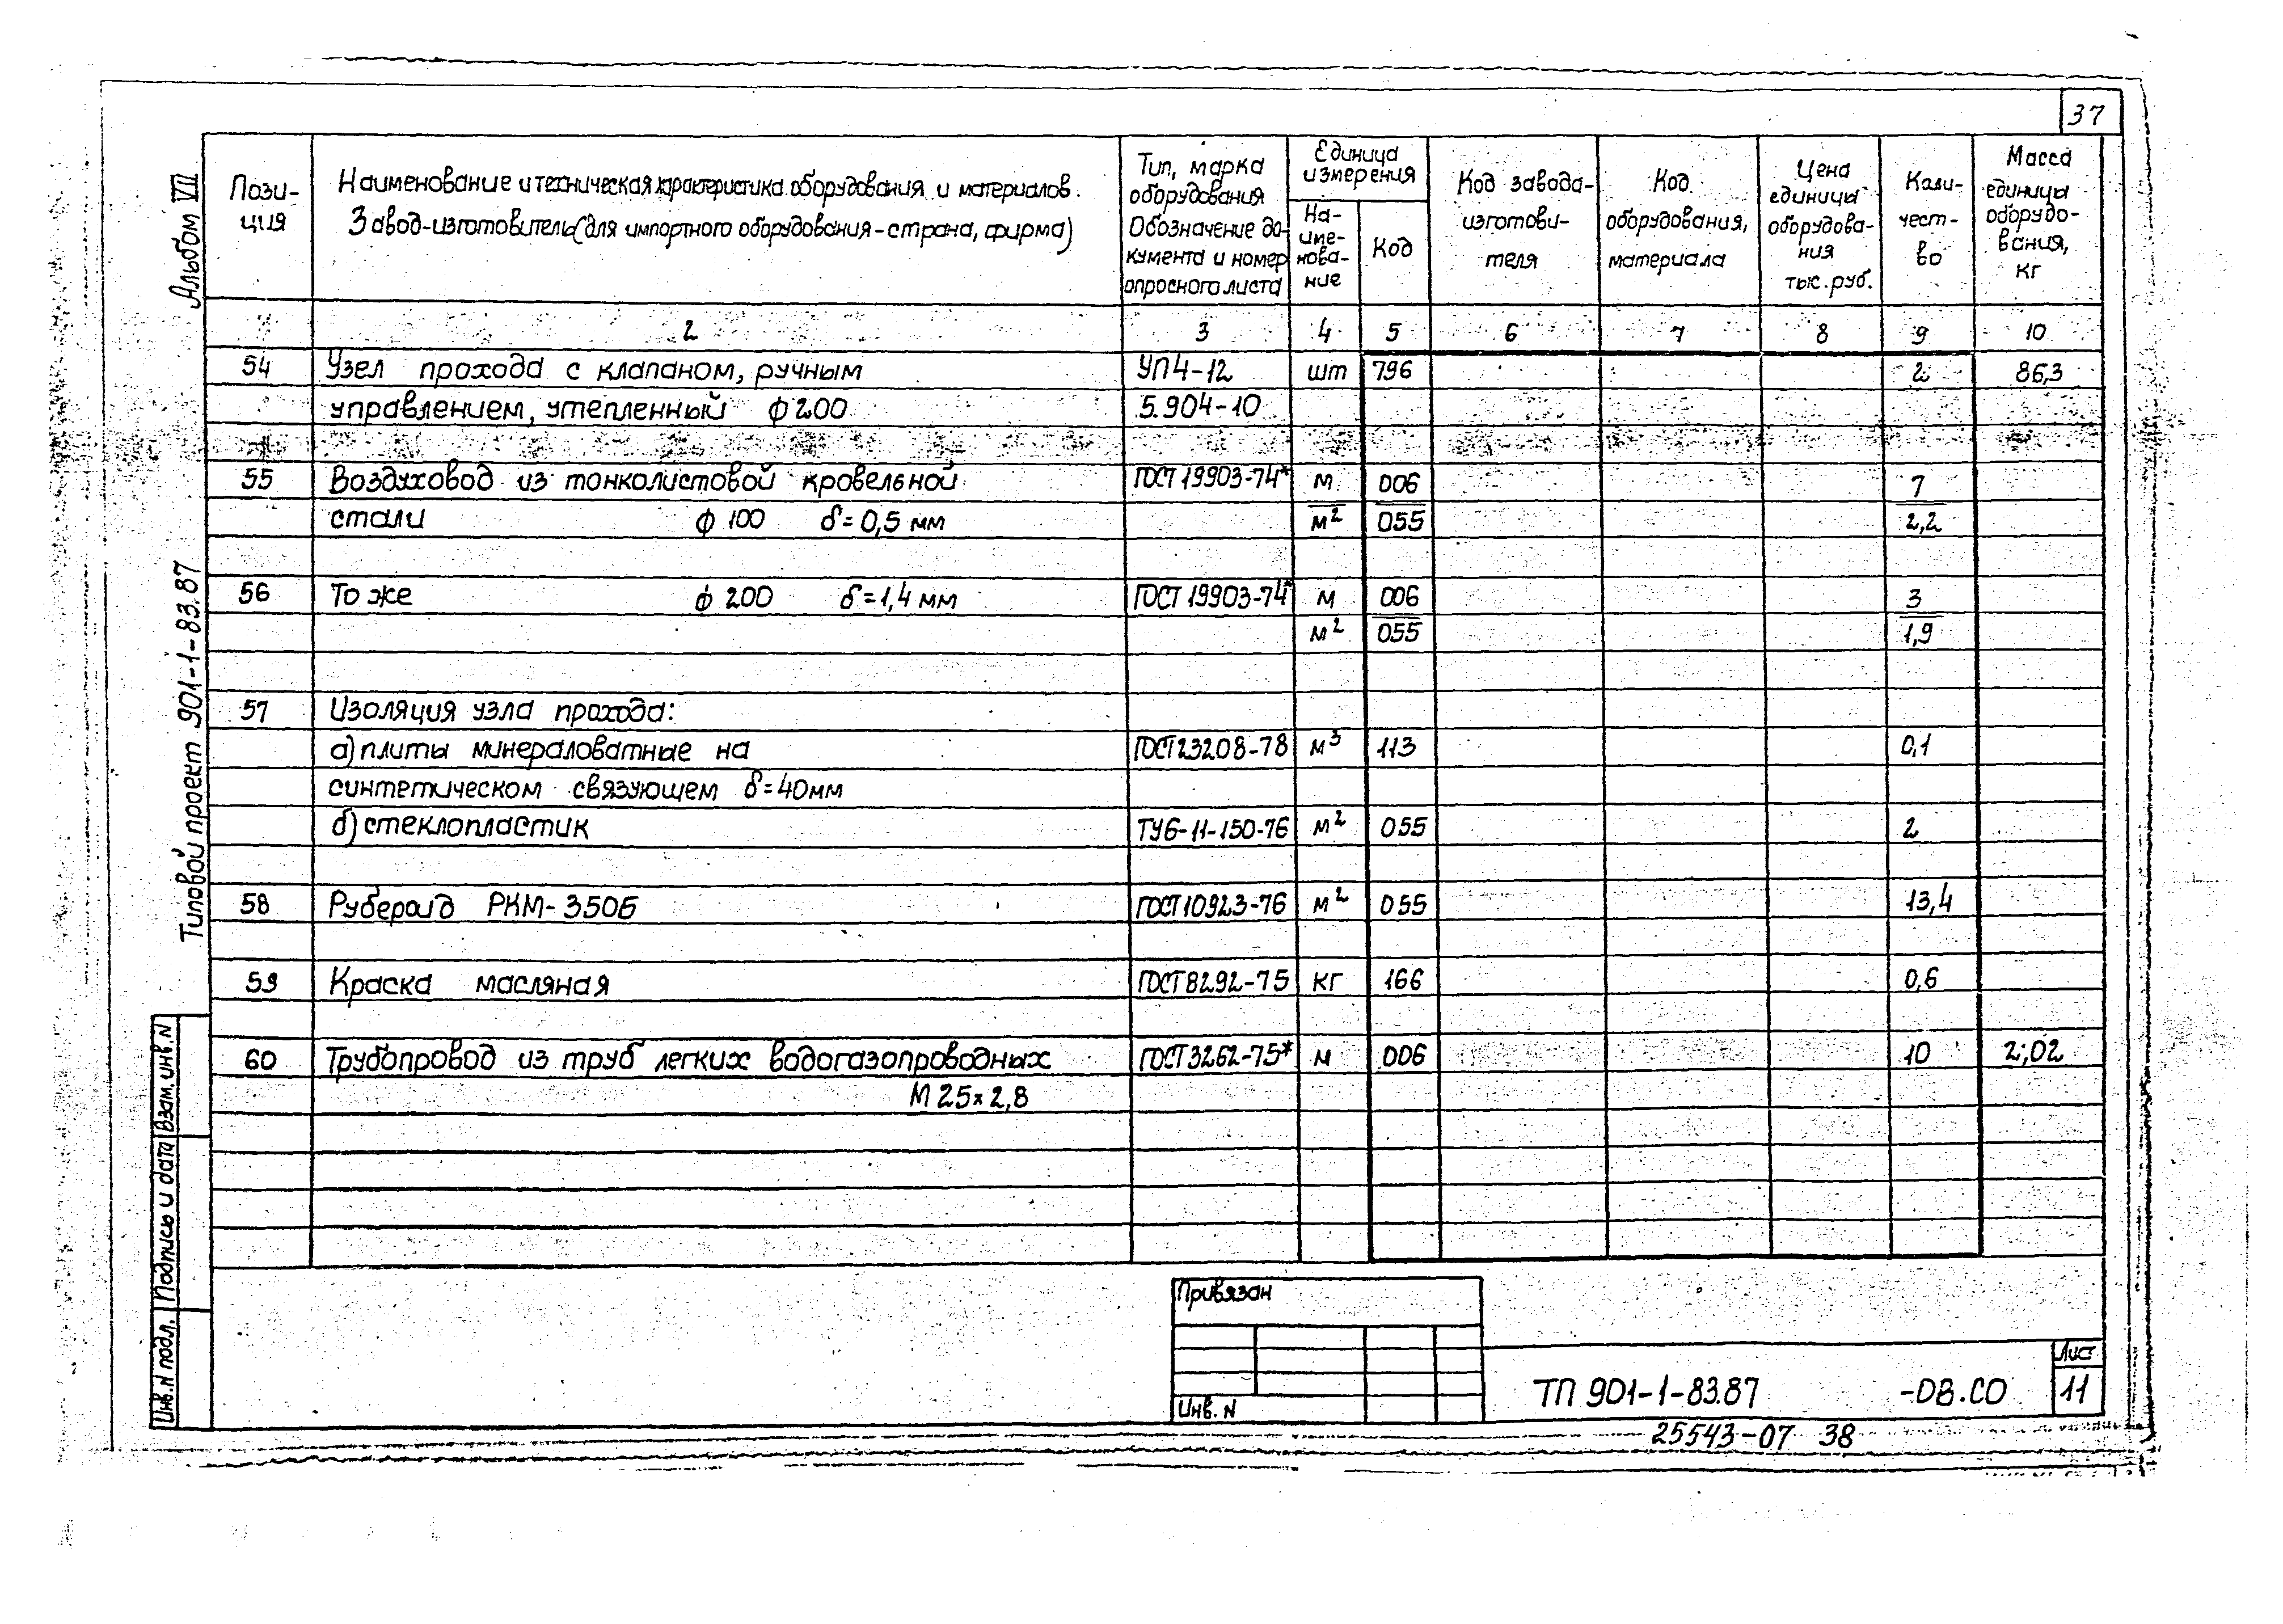 37
Альбом VII
Типовой проект 901-1-83.87
Пози-
ция
Наименование и техническая характеристика оборудования и материалов.
Завод-изготовитель (для импортного оборудования - страна, фирма)
Тип, марка
оборудования
Обозначение до-
кумента и номер
опросного листа
Единица
измерения
На-
име-
нова-
ние
Код
Код завода-
изготови-
теля
Код
оборудования,
материала
Цена
единицы
оборудова-
ния
тыс. руб.
Коли-
чест-
во
Масса
единицы
оборудо-
вания,
кг
2 3 4 5 6 7 8 9 10
54 Узел прохода с клапаном, ручным УП4-12 шт 796 2 86,3
управлением, утепленный ф 200 5.904-10
55 Воздуховод из тонколистовой кровельной ГОСТ 19903-74* м 006 7
стали ф 100 δ=0,5 мм м² 055 2,2
56 То же ф 200 δ=1,4 мм ГОСТ 19903-74* м 006 3
м² 055 1,9
57 Изоляция узла прохода:
а) плиты минераловатные на ГОСТ 23208-78 м³ 113 0,1
синтетическом связующем δ=40мм
б) стеклопластик ТУ6-11-150-76 м² 055 2
58 Рубероид РКМ-350Б ГОСТ 10923-76 м² 055 13,4
59 Краска масляная ГОСТ 8292-75 кг 166 0,6
60 Трубопровод из труб легких водогазопроводных ГОСТ 3262-75* м 006 10 2,02
М 25×2,8
Взам. инв. N
Подпись и дата
Инв. N подл.
Привязан
Инв. N
ТП 901-1-83.87 -ОВ.СО
Лист
11
25543-07 38